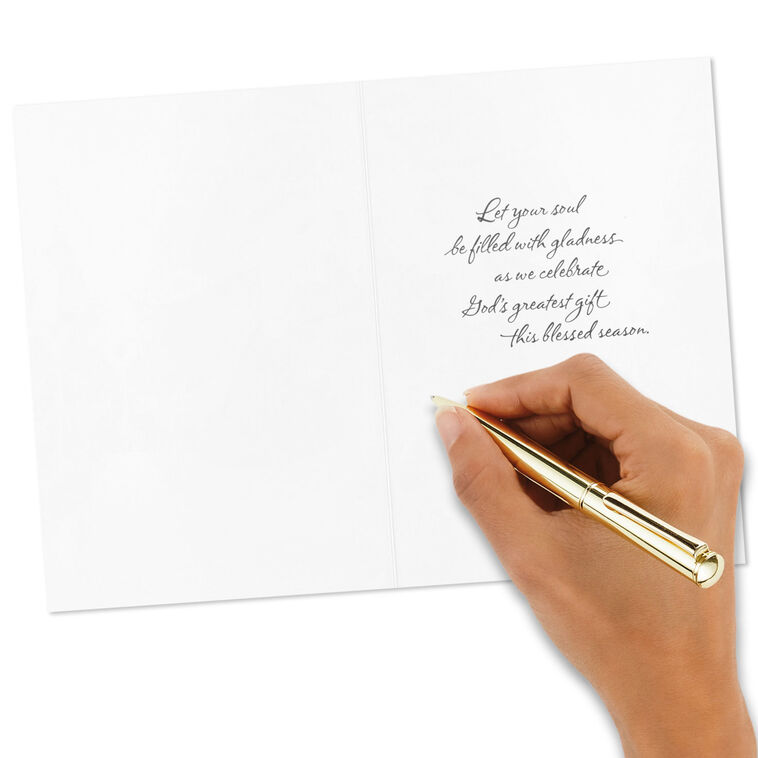 Let your soul
be filled with gladness
as we celebrate
God's greatest gift
this blessed season.